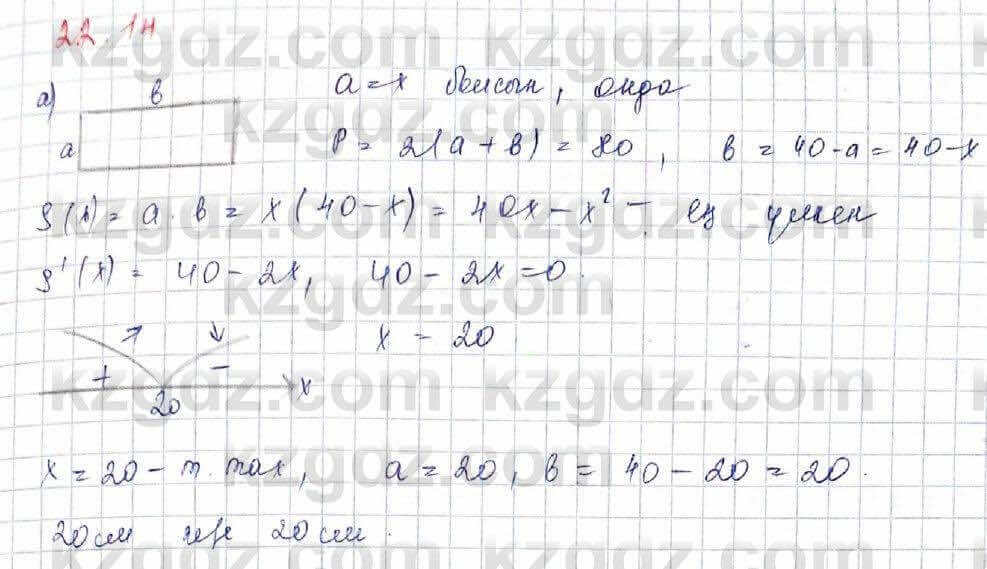 22.14
а) в a=x болсын, онда
a P = 2(a+в) = 80, в = 40-a = 40-x
S(x) = a·в = x(40-x) = 40x-x² - ең үлкен
S'(x) = 40-2x, 40-2x=0.
↗ ↘ x = 20
+ - x
20
x = 20 - т. max, a = 20, в = 40-20 = 20.
20см және 20см.
kzgdz.com